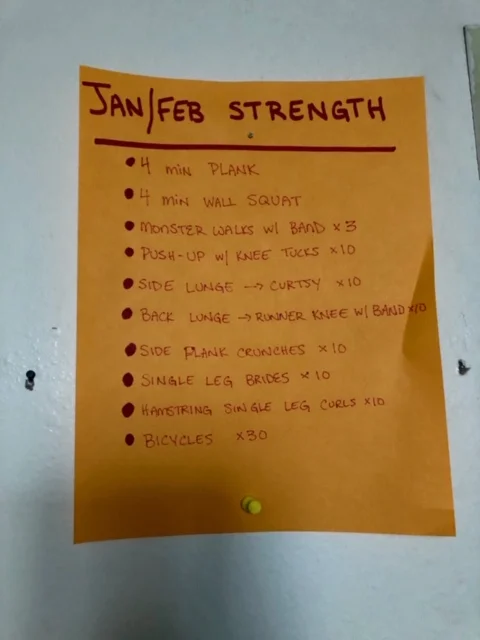 JAN/FEB STRENGTH
• 4 min PLANK
• 4 min WALL SQUAT
• MONSTER WALKS W/ BAND x3
• PUSH-UP W/ KNEE TUCKS x10
• SIDE LUNGE --> CURTSY x10
• BACK LUNGE → RUNNER KNEE W/ BAND x10
• SIDE PLANK CRUNCHES x10
• SINGLE LEG BRIDES x10
• HAMSTRING SINGLE LEG CURLS x10
• BICYCLES x30